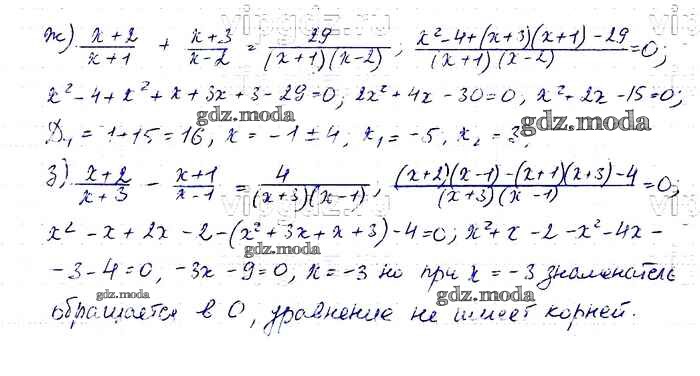 ж) (x+2)/(x+1) + (x+3)/(x-2) = 29/((x+1)(x-2)); (x²-4+(x+3)(x+1)-29)/((x+1)(x-2)) = 0;
x²-4+x²+x+3x+3-29=0; 2x²+4x-30=0; x²+2x-15=0;
gdz.moda
D₁=1+15=16, x=-1±4, x₁=-5, x₂=3;
gdz.moda
gdz.moda
з) (x+2)/(x+3) - (x+1)/(x-1) = 4/((x+3)(x-1)); ((x+2)(x-1)-(x+1)(x+3)-4)/((x+3)(x-1)) = 0;
x²-x+2x-2-(x²+3x+x+3)-4=0; x²+x-2-x²-4x-
gdz.moda
-3-4=0, -3x-9=0, x=-3 но при x=-3 знаменатель
gdz.moda
gdz.moda
обращается в 0, уравнение не имеет корней.